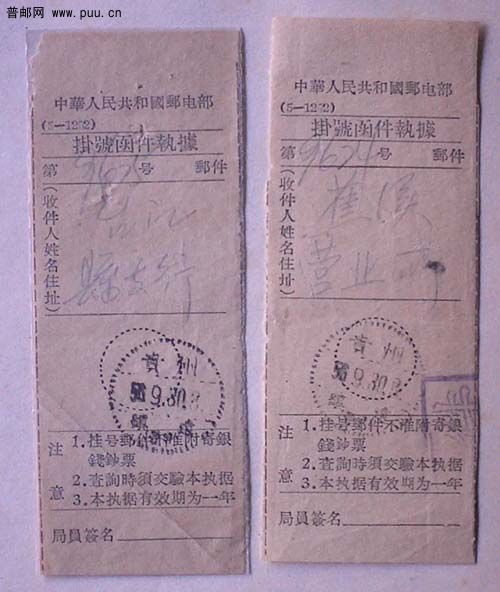 普邮网 www.puu.cn
中華人民共和國郵电部
(5-1272)
掛號函件執據
第 9625 号 郵件
(收件人姓名住址)
縣支行
貴州
56.9.30.
鎮遠
注意
1.挂号郵件不准附寄銀
錢鈔票
2.查詢時須交驗本执据
3.本执据有效期为一年
局員簽名
中華人民共和國郵电部
(5-1272)
掛號函件執據
第 9624 号 郵件
(收件人姓名住址)
蕉溪
营业所
貴州
56.9.30.
鎮遠
注意
1.挂号郵件不准附寄銀
錢鈔票
2.查詢時須交驗本执据
3.本执据有效期为一年
局員簽名